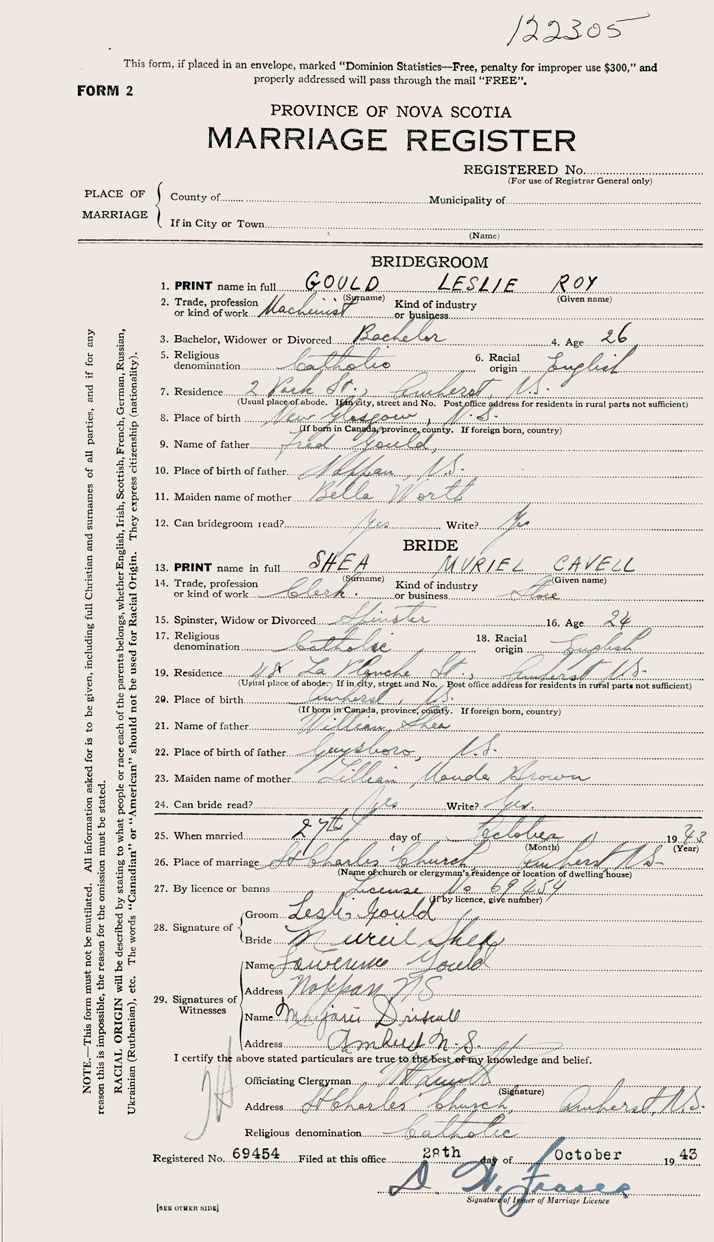 122305
This form, if placed in an envelope, marked "Dominion Statistics—Free, penalty for improper use $300," and
properly addressed will pass through the mail "FREE".
FORM 2
PROVINCE OF NOVA SCOTIA
MARRIAGE REGISTER
REGISTERED No.
(For use of Registrar General only)
PLACE OF MARRIAGE
County of Municipality of
If in City or Town
(Name)
BRIDEGROOM
1. PRINT name in full GOULD LESLIE ROY
(Surname) (Given name)
2. Trade, profession or kind of work Machinist Kind of industry or business
3. Bachelor, Widower or Divorced Bachelor 4. Age 26
5. Religious denomination Catholic 6. Racial origin English
7. Residence 2 Park St., Amherst N.S.
(Usual place of abode. If in city, street and No. Post office address for residents in rural parts not sufficient)
8. Place of birth New Glasgow, N.S.
(If born in Canada, province, county. If foreign born, country)
9. Name of father Fred Gould,
10. Place of birth of father Nappan, N.S.
11. Maiden name of mother Bella Worth
12. Can bridegroom read? Yes Write? Yes
BRIDE
13. PRINT name in full SHEA MURIEL CAVELL
(Surname) (Given name)
14. Trade, profession or kind of work Clerk. Kind of industry or business Store
15. Spinster, Widow or Divorced Spinster 16. Age 24
17. Religious denomination Catholic 18. Racial origin English
19. Residence 48 La Planche St., Amherst N.S.
(Usual place of abode. If in city, street and No. Post office address for residents in rural parts not sufficient)
20. Place of birth Amherst, N.S.
(If born in Canada, province, county. If foreign born, country)
21. Name of father William Shea
22. Place of birth of father Guysboro, N.S.
23. Maiden name of mother Lillian Maude Brown
24. Can bride read? Yes Write? Yes.
25. When married 27th day of October 1943
(Month) (Year)
26. Place of marriage St Charles Church Amherst N.S.
(Name of church or clergyman's residence or location of dwelling house)
27. By licence or banns License No 69454
(If by licence, give number)
28. Signature of
Groom Leslie Gould
Bride Muriel Shea
29. Signatures of Witnesses
Name Lawrence Gould
Address Nappan NS
Name Marjorie Driscoll
Address Amherst N.S.
I certify the above stated particulars are true to the best of my knowledge and belief.
Officiating Clergyman
(Signature)
Address St Charles Church, Amherst, N.S.
Religious denomination Catholic
Registered No. 69454 Filed at this office 28th day of October 1943
D. W. Fraser
Signature of Issuer of Marriage Licence
[SEE OTHER SIDE]
NOTE.—This form must not be mutilated. All information asked for is to be given, including full Christian and surnames of all parties, and if for any
reason this is impossible, the reason for the omission must be stated.
RACIAL ORIGIN will be described by stating to what people or race each of the parents belongs, whether English, Irish, Scottish, French, German, Russian,
Ukrainian (Ruthenian), etc. The words "Canadian" or "American" should not be used for Racial Origin. They express citizenship (nationality).